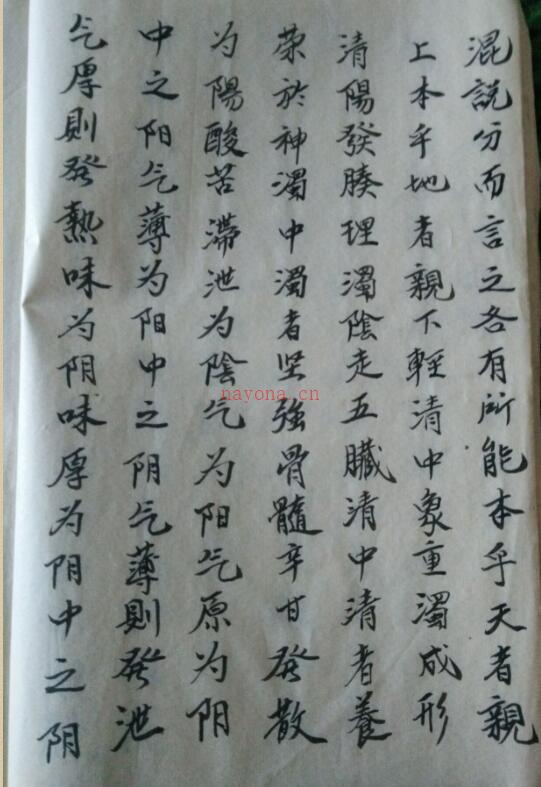 混説分而言之各有所能本乎天者親
上本乎地者親下輕清中象重濁成形
清陽發腠理濁陰走五臟清中清者養
荣於神濁中濁者坚強骨髓辛甘發散
为陽酸苦滯泄为陰气为阳气原为阴
中之阳气薄为阳中之阴气薄則發泄
气厚則發熱味为阴味厚为阴中之阴
nayona.cn